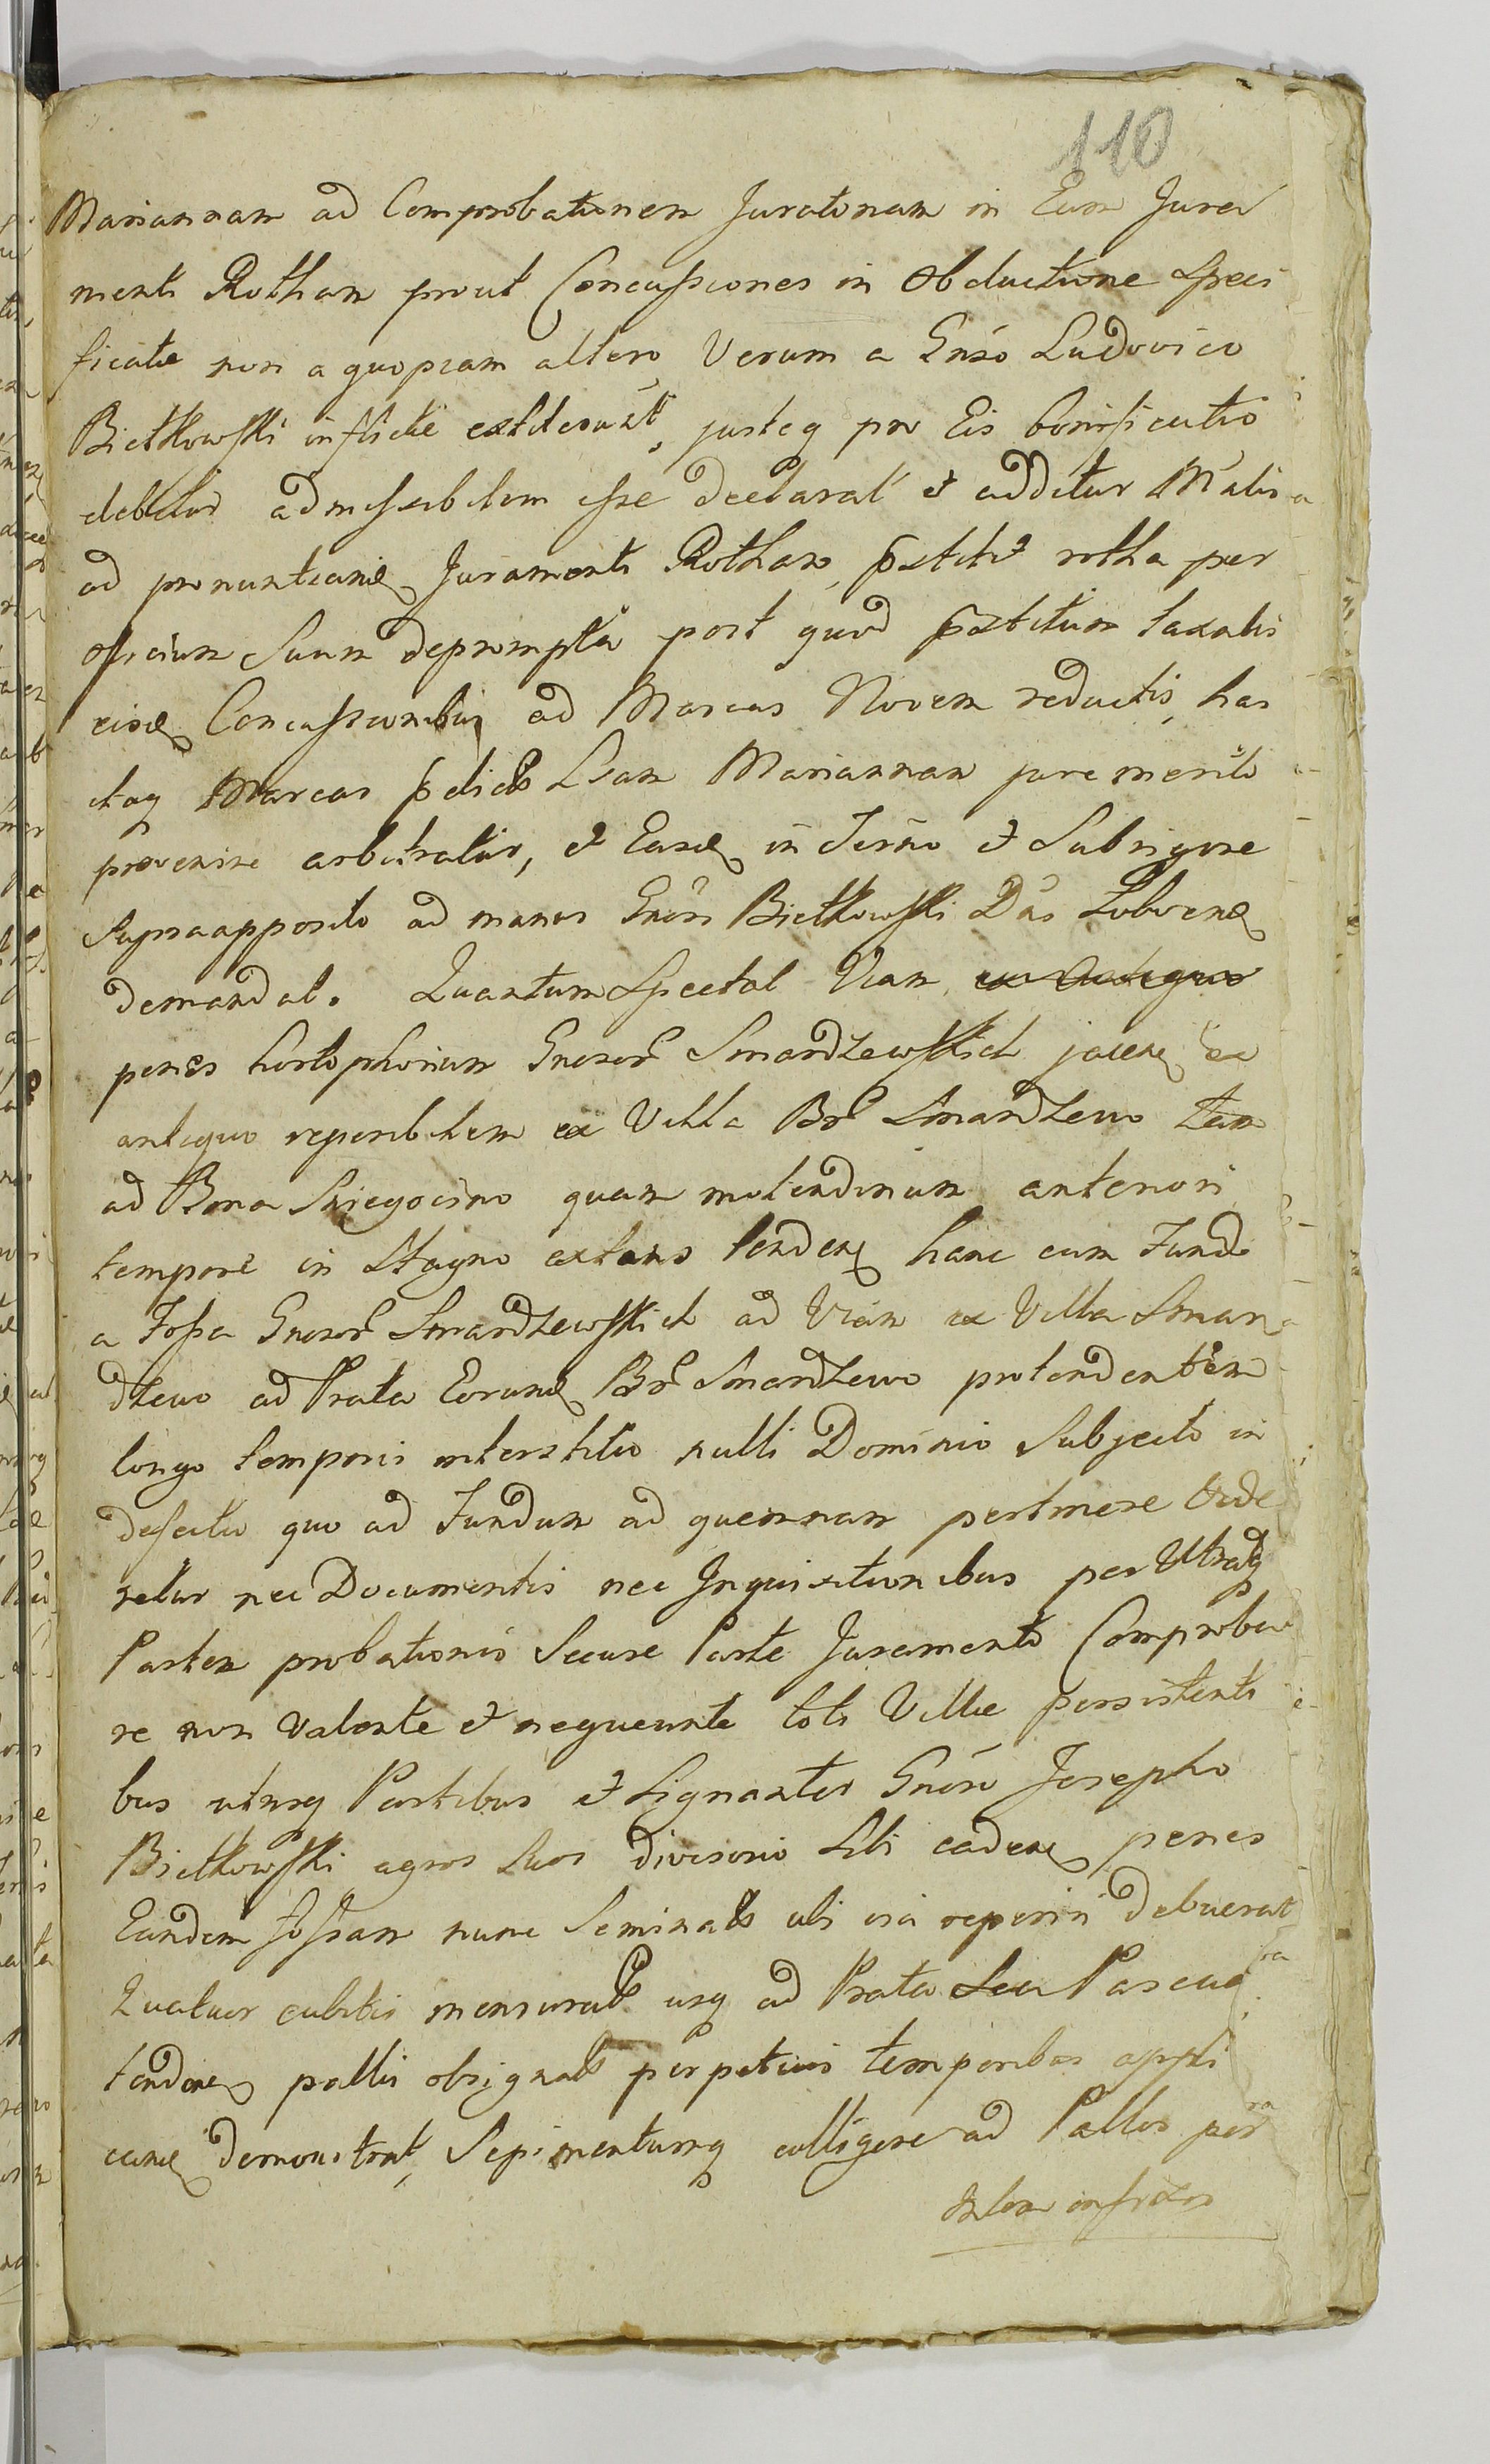 110
Mariannam ad Comprobationem Juratoriam in Eam Jura
menti Rotham prout Concussiones in Obductione speci
ficatæ non a quopiam altero Verum a Gnso Ludovico
Biettkowski inflictæ extiterunt, justeq pro Eis bonificatio
debetur admissibilem esse declarat et additur Mtalis
ad pronuntiand Juramenti Rotham, pstitit rotha per
officium Suum deprompta post quod pstitum taxatis
eisd Concussionibus ad Marcas Novem reductis, has
itaq Marcas pdictb Lsam Mariannam jure merito
provenire arbitratur, et Easd in Termo et Sub rigore
supraapposito ad manus Gnsi Biettkowski Das Solvend
demandat. Quantum Spectat Viam
penes hortophorium Gnsor Smardzewskich jacen ex
antiquo reperibilem ex Villa Br Smardzewo tam
ad Bona Sniegocino quam molendinum anteriori
tempore in Stagno extans tenden hanc cum Fundo
a Fossa Gnsor Smardzewskich ad Viam ex Villa Smar
dzewo ad Prata Eorund Br Smardzewo protendentem
longo temporis interstitio nulli Dominio Subjecto in
defectu quo ad Fundum ad quemnam pertinere vide
retur nec Documentis nec Inquisitionibus per Utraq
Partem probationis Secure Parte Juramento Comproba
re non Valente et nequeunte toti Villæ persistenti
bus utrisq Partibus et Signanter Gnso Josepho
Biettkowski agros Suos divisorio Sibi caden penes
Eandem fossam nunc Seminatb ubi via reperiri debuerat
Quatuor cubitis mensuratb usq ad Prata Seu Pascua
tenden pallis obsignatb perpetuis temporibus appli
cand demonstrat, Sepimentumq colligere ad Pallos per
infixos